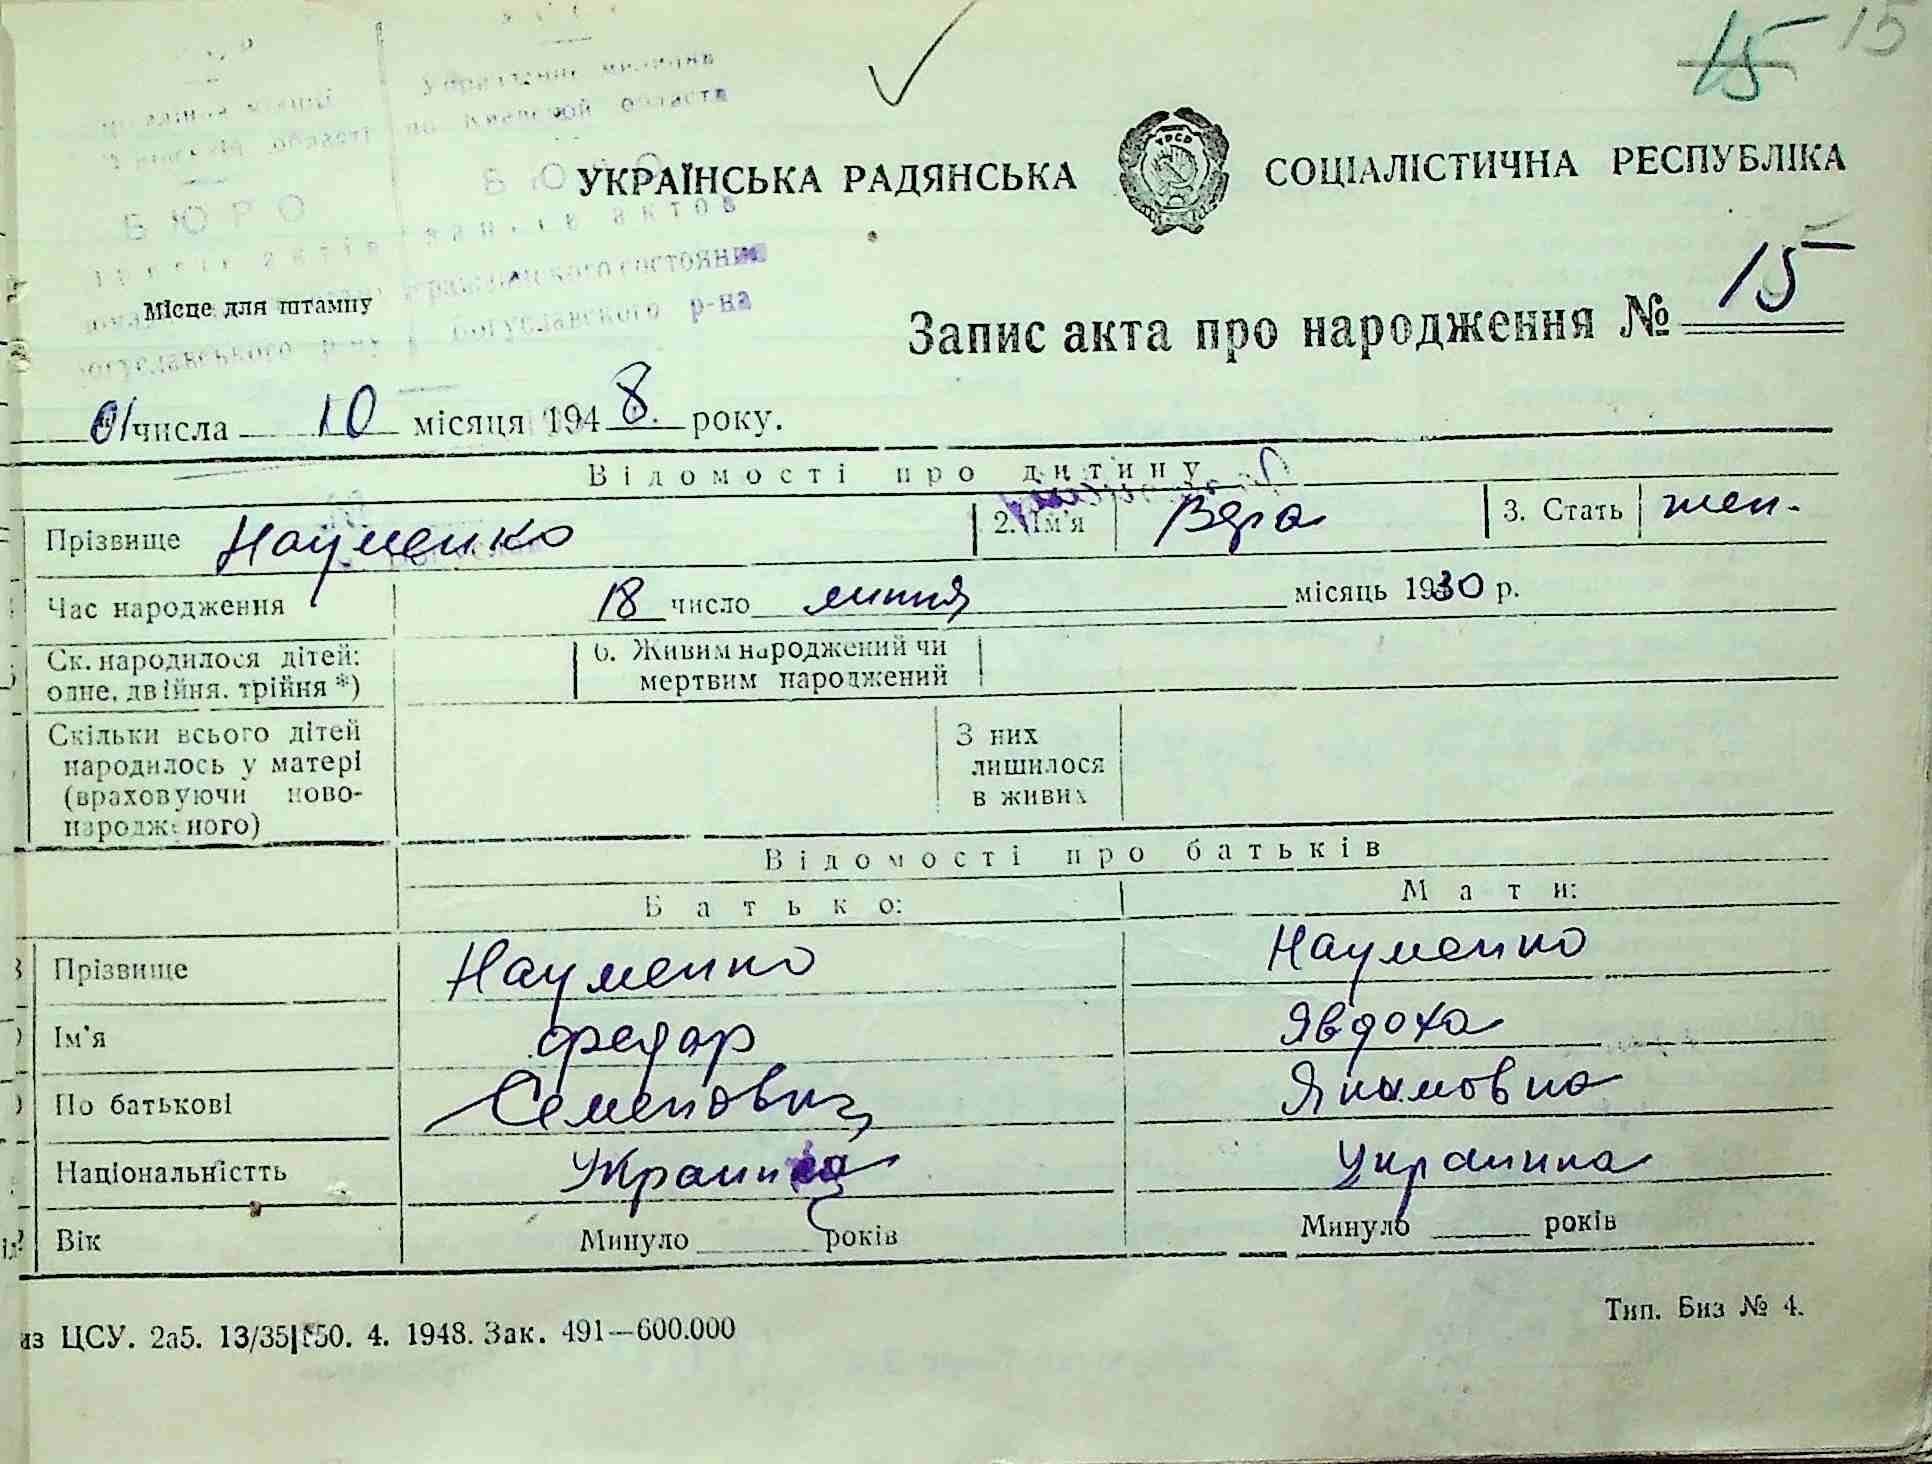 15 15
Управление милиции
по Киевской области
БЮРО
БЮРО
актов
гражданского состояния
Богуславского р-ну Богуславского р-на
УКРАЇНСЬКА РАДЯНСЬКА СОЦІАЛІСТИЧНА РЕСПУБЛІКА
Місце для штампу
Запис акта про народження № 15
01 числа 10 місяця 1948. року.
Відомості про дитину
Прізвище Науменко 2. Ім'я Вера 3. Стать жен.
Час народження 18 число липня місяць 1930 р.
Ск. народилося дітей: одне, двійня, трійня *) 6. Живим народжений чи мертвим народжений
Скільки всього дітей народилось у матері (враховуючи ново-народженого) З них лишилося в живих
Відомості про батьків
Батько: Мати:
Прізвище Науменко Науменко
Ім'я Федор Явдоха
По батькові Семенович Якимовна
Національністть Украинец Украинка
Вік Минуло років Минуло років
из ЦСУ. 2а5. 13/35 150. 4. 1948. Зак. 491—600.000 Тип. Биз № 4.